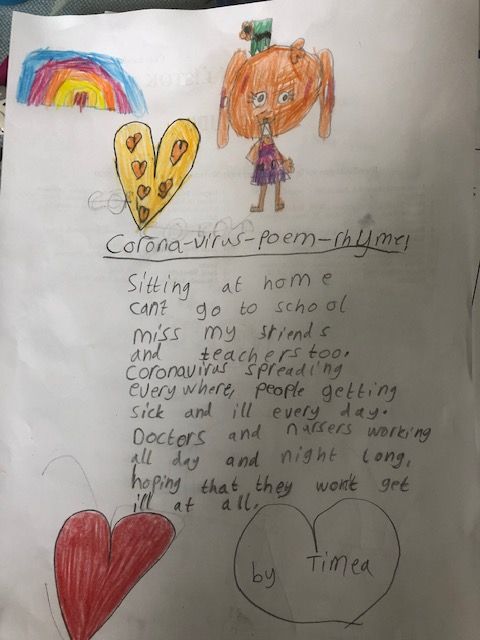 Corona-virus-Poem-rhyme!
Sitting at home
can't go to school
miss my sriends
and teachers too.
coronavirus spreading
everywhere, people getting
sick and ill every day.
Doctors and nursers working
all day and night long,
hoping that they won't get
ill at all.
by Timea